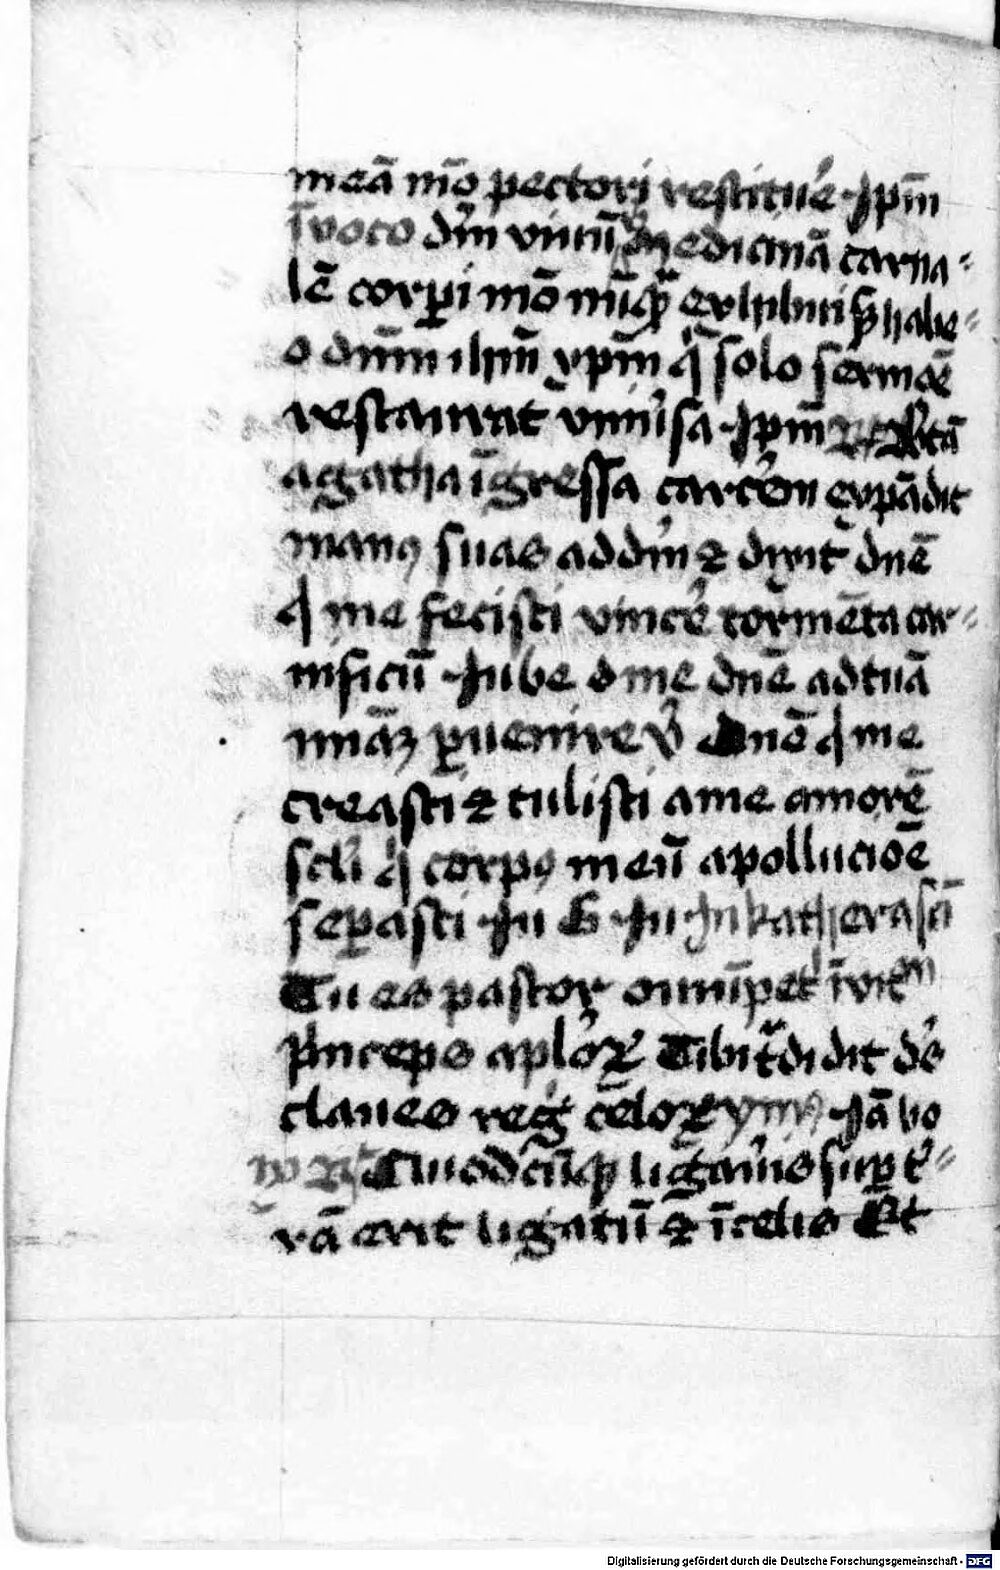 meā mō pectori restitu'e Ip̄m
īuoco dm̄ viuū V̓ Medicinā carna=
lē corꝑi mō nūq̄ exhibui sꝫ habe=
o dnm̄ ihm̄ xpm̄ qͥ solo sermōe
restaurat vniu'sa Ip̄m R̄ Btā
agatha īgressa carc'em expādit
manꝰ suas ad dm̄ ⁊ dixit dnē
qͥ me fecisti vinc'e tormēta car=
nificū Iube me dnē ad tuā
miāꝫ ꝑuenire V̓ Dnē qͥ me
creasti ⁊ tulisti a me amorē
sc̄li qͥ corpꝰ meū a pollucioē
seꝑasti In katherа sc̄i
Tu es pastor ouiū pet'
p̓nceps aplo'ꝝ Tibi t̄didit de'
claues reg̓ celoꝝ ymꝰ Iā bo
R̄ Quodcūqꝫ ligau'is suꝑ t'=
rā erit ligatū ⁊ ī celis Et
Digitalisierung gefördert durch die Deutsche Forschungsgemeinschaft - DFG